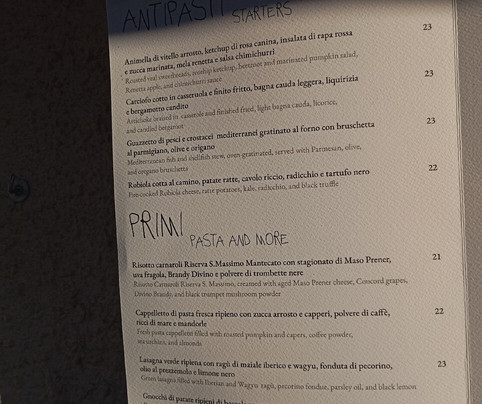 ANTIPASTI STARTERS
Animella di vitello arrosto, ketchup di rosa canina, insalata di rapa rossa 23
e zucca marinata, mela renetta e salsa chimichurri
Roasted veal sweetbreads, rosehip ketchup, beetroot and marinated pumpkin salad,
Renetta apple, and chimichurri sauce
Carciofo cotto in casseruola e finito fritto, bagna cauda leggera, liquirizia 23
e bergamotto candito
Artichoke braised in casserole and finished fried, light bagna cauda, licorice,
and candied bergamot
Guazzetto di pesci e crostacei mediterranei gratinato al forno con bruschetta 23
al parmigiano, olive e origano
Mediterranean fish and shellfish stew, oven-gratinated, served with Parmesan, olive,
and oregano bruschetta
Robiola cotta al camino, patate ratte, cavolo riccio, radicchio e tartufo nero 22
Fire-cooked Robiola cheese, ratte potatoes, kale, radicchio, and black truffle
PRIMI PASTA AND MORE
Risotto carnaroli Riserva S.Massimo Mantecato con stagionato di Maso Prener, 21
uva fragola, Brandy Divino e polvere di trombette nere
Risotto Carnaroli Riserva S. Massimo, creamed with aged Maso Prener cheese, Concord grapes,
Divino Brandy, and black trumpet mushroom powder
Cappelletto di pasta fresca ripieno con zucca arrosto e capperi, polvere di caffè, 22
ricci di mare e mandorle
Fresh pasta cappelletti filled with roasted pumpkin and capers, coffee powder,
sea urchins, and almonds
Lasagna verde ripiena con ragù di maiale iberico e wagyu, fonduta di pecorino, 23
olio al prezzemolo e limone nero
Green lasagna filled with Iberian and Wagyu ragù, pecorino fondue, parsley oil, and black lemon
Gnocchi di patate ripieni di